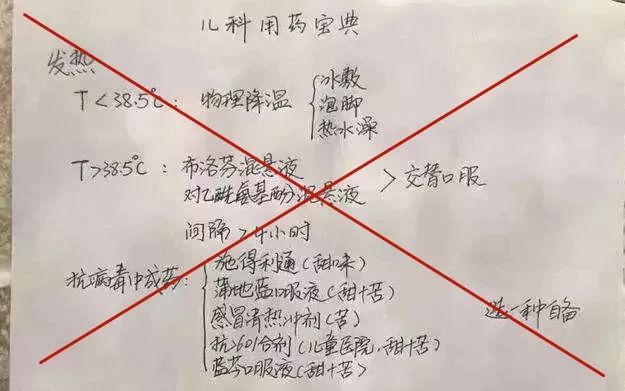 儿科用药宝典
发热
T<38.5℃: 物理降温 冰敷
泡脚
热水澡
T>38.5℃: 布洛芬混悬液
对乙酰氨基酚混悬液 > 交替口服
间隔>4小时
抗病毒中成药: 施得利通(甜味)
蒲地蓝口服液(甜+苦)
感冒清热冲剂(苦)
抗601合剂(儿童医院,甜+苦)
蓝芩口服液(甜+苦)
选一种自备